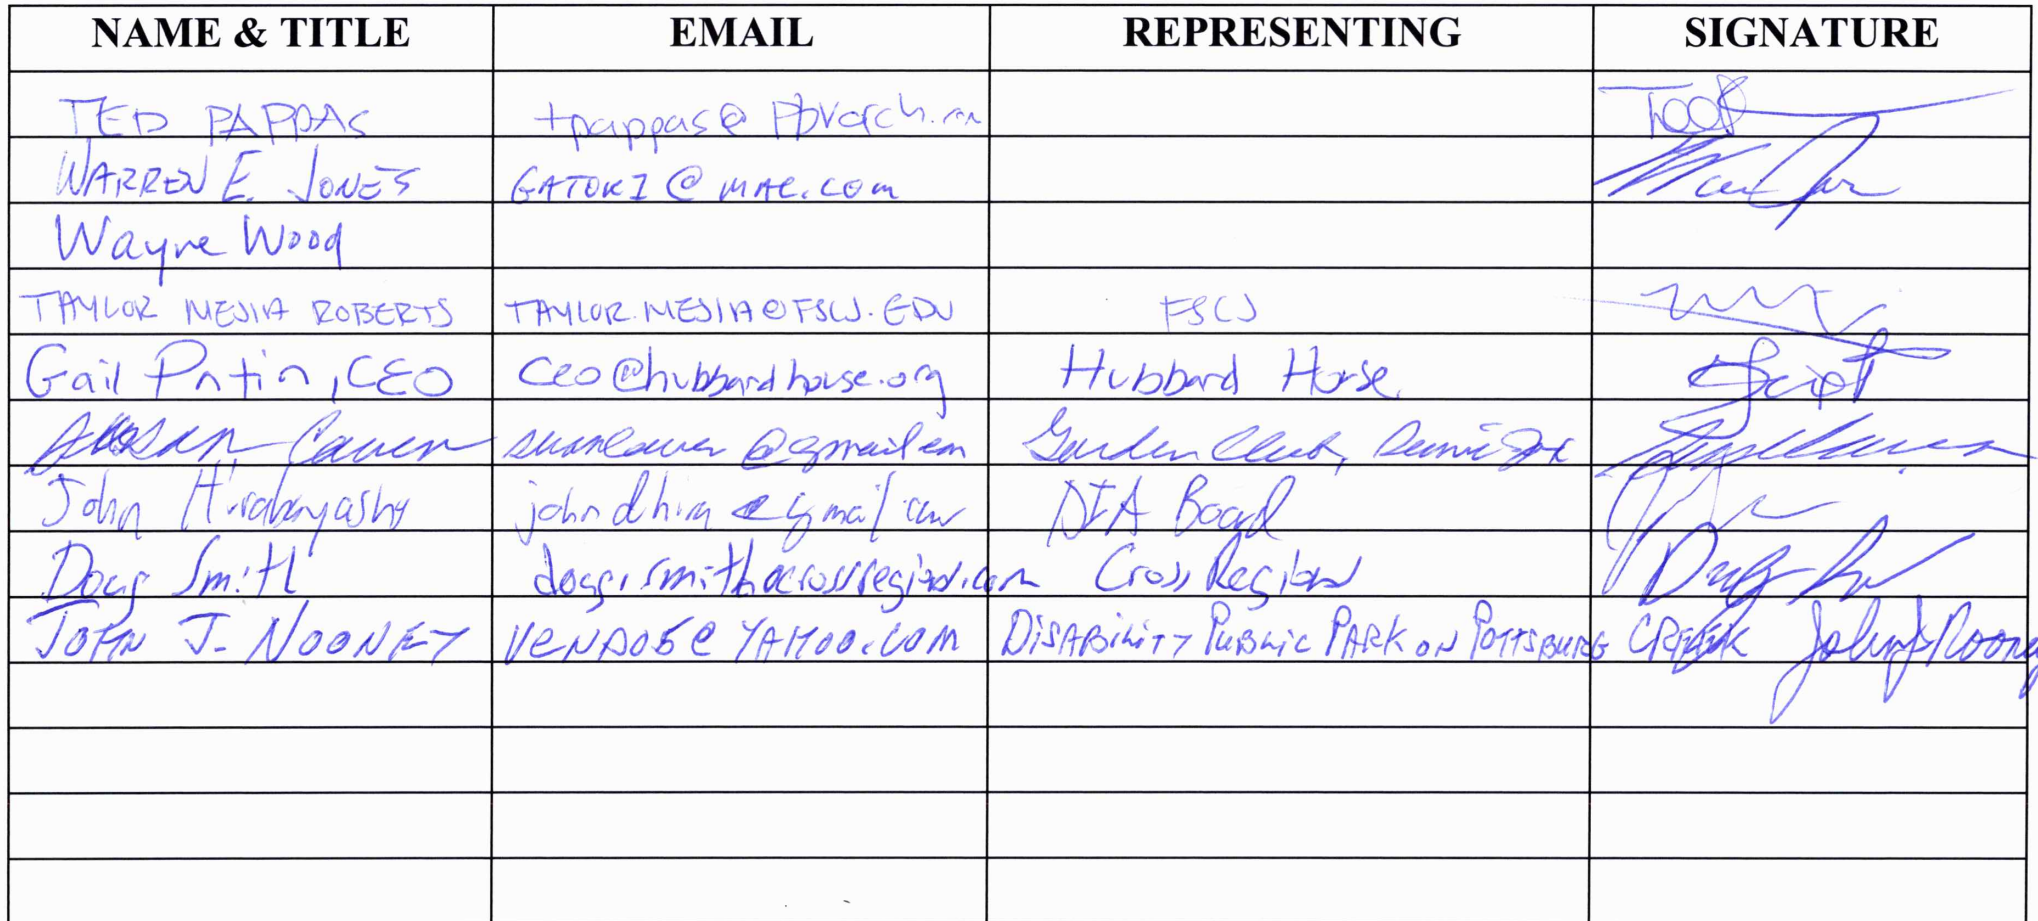 NAME & TITLE EMAIL REPRESENTING SIGNATURE
TED PAPPAS tpappas@pbvarch.
WARREN E. JONES @MAC.COM
Wayne Wood
TAYLOR MEJIA ROBERTS TAYLOR.MEJIA@FSCJ.EDU FSCJ
Gail Patin, CEO ceo@hubbardhouse.org Hubbard House
Susan Caven Garden Club,
John Hirabayashy johndhira@gmail.com DIA Board
Doug Smith doug.smith@crossregion.com Cross Region
JOHN J. NOONEY VENDO5@YAHOO.COM DISABILITY PUBLIC PARK ON POTTSBURG CREEK John J Nooney